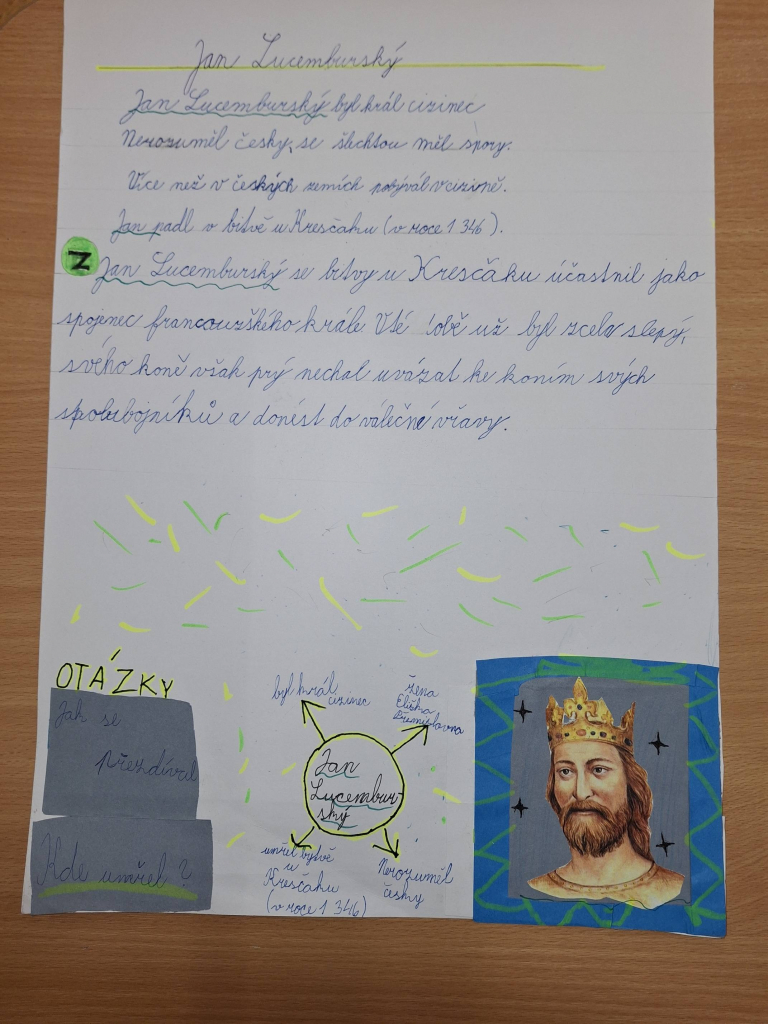 Jan Lucemburský
Jan Lucemburský byl král cizinec
Nerozuměl česky, se šlechtou měl spory.
Více než v českých zemích pobýval v cizině.
Jan padl v bitvě u Kresčaku (v roce 1 346).
Z
Jan Lucemburský se bitvy u Kresčaku účastnil jako
spojenec francouzského krále V té době už byl zcela slepý,
svého koně však prý nechal uvázat ke koním svých
spolubojníků a donést do válečné vřavy.
OTÁZKY
Jak se
přezdívil
Kde umřel ?
byl král
cizinec
žena
Eliška
Přemislovna
Jan
Lucembur-
ský
umřel bytvě
u
Kresčaku
(v roce 1 346)
Nerozuměl
česky